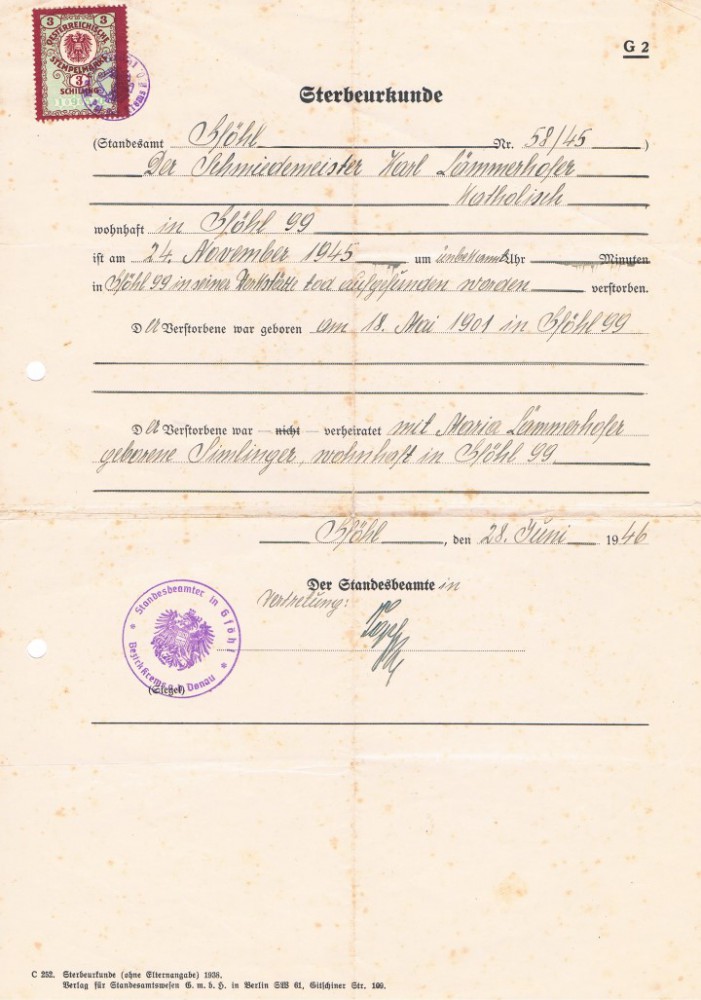 3 3
OESTERREICHISCHE
STEMPELMARKE
3
SCHILLING
G 2
Sterbeurkunde
(Standesamt Gföhl Nr. 58/45 )
Der Schmiedemeister Karl Lämmerhofer
Katholisch
wohnhaft in Gföhl 99
ist am 24. November 1945 um unbekannt Uhr Minuten
in Gföhl 99 in seiner Werkstätte tod aufgefunden worden verstorben.
Der Verstorbene war geboren am 18. Mai 1901 in Gföhl 99
Der Verstorbene war – nicht – verheiratet mit Maria Lämmerhofer
geborene Simlinger, wohnhaft in Gföhl 99
Gföhl, den 28. Juni 1946
Der Standesbeamte in
Vertretung:
Standesbeamter in Gföhl
Bezirk Krems a. d. Donau
(Siegel)
C 252. Sterbeurkunde (ohne Elternangabe) 1938.
Verlag für Standesamtswesen G. m. b. H. in Berlin SW 61, Gitschiner Str. 109.